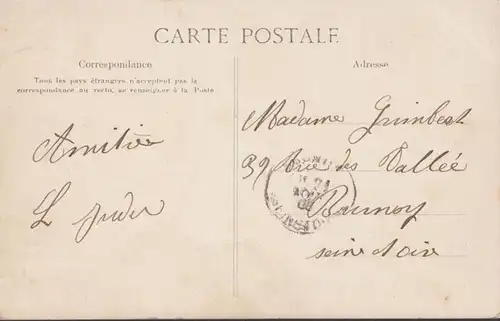 CARTE POSTALE
Correspondance
Tous les pays étrangers n'acceptent pas la
correspondance au verso, se renseigner à la Poste
Amitiés
L
Adresse
Madame Guimbert
39 Rue des Vallée
Brunoy
seine et oise